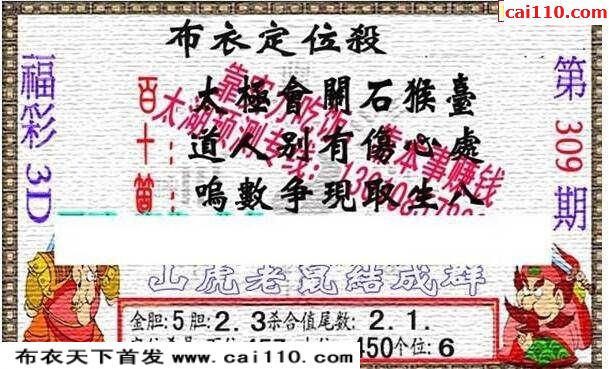 cai110.com
布衣定位殺
福彩3D
第309期
百：太極會開石猴臺
十：道人别有傷心處
嗚數爭現取生八
靠实力吃饭 靠本事赚钱
太湖预测专线：
山虎老鼠結成群
金胆:5胆:2.3杀合值尾数:2.1.
450个位:6
布衣天下首发 www.cai110.com